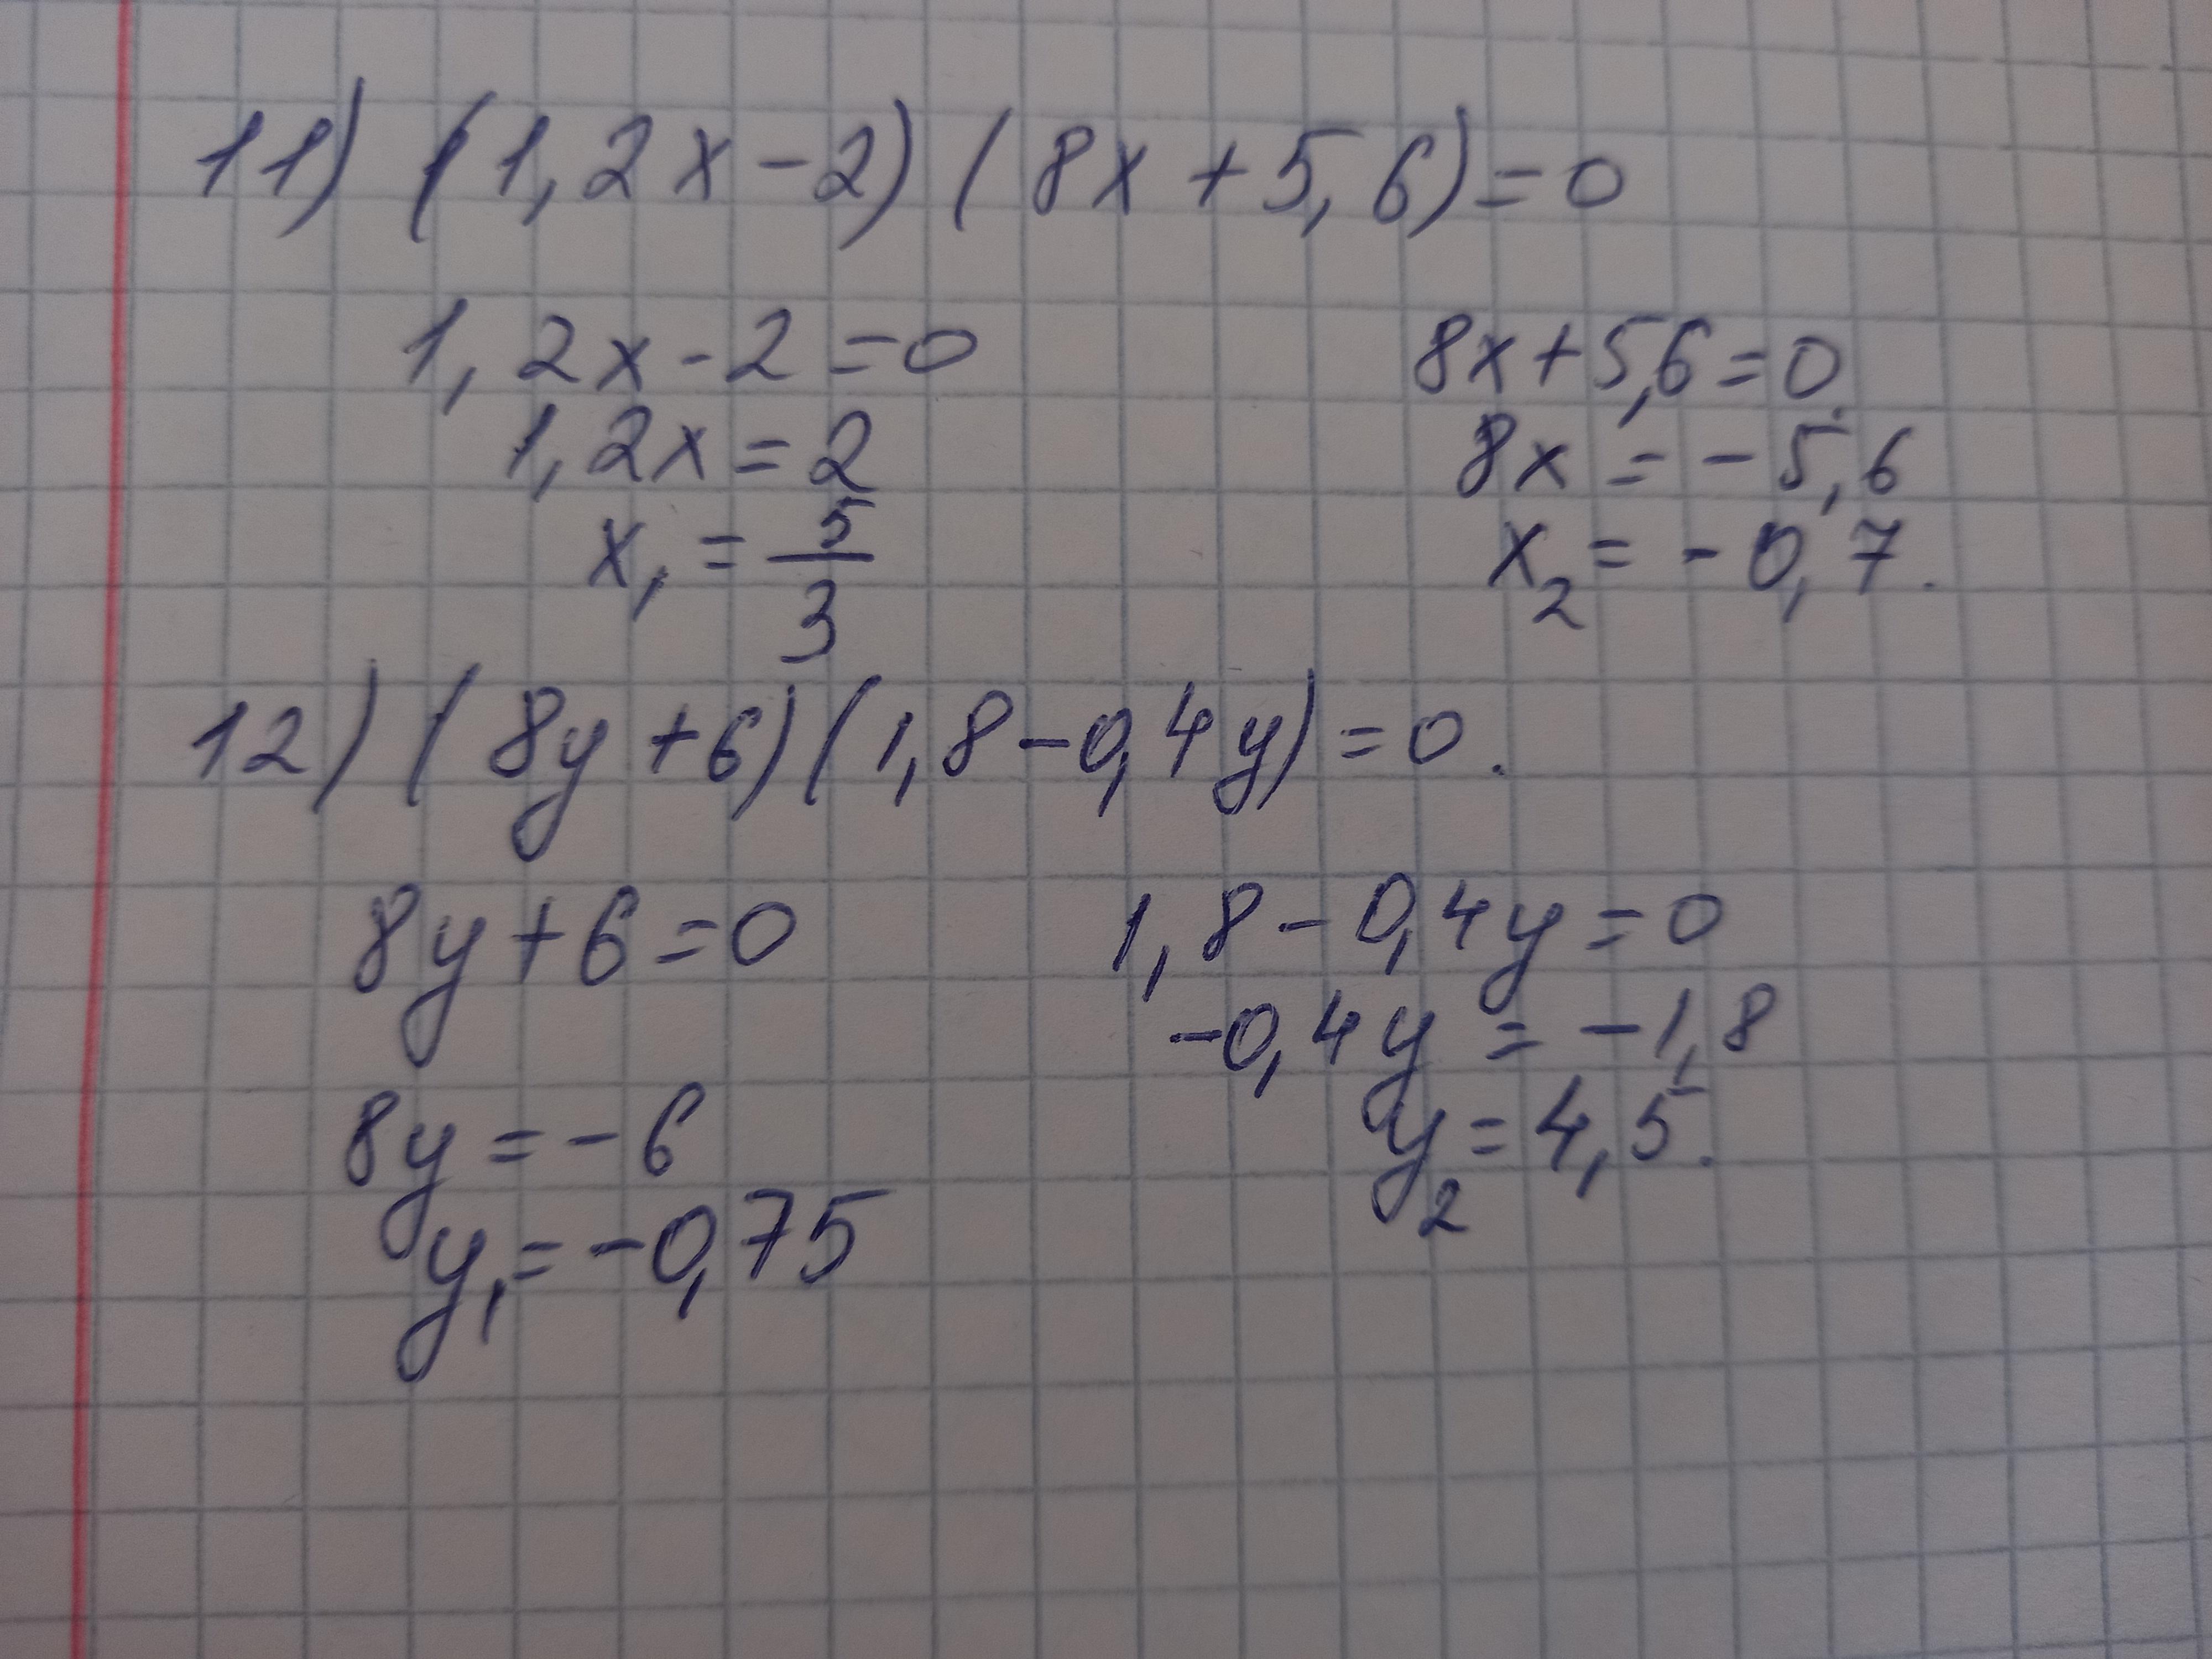 11) (1,2x-2)(8x+5,6)=0
1,2x-2=0
1,2x=2
x₁=5/3
8x+5,6=0
8x=-5,6
x₂=-0,7.
12) (8y+6)(1,8-0,4y)=0.
8y+6=0
8y=-6
y₁=-0,75
1,8-0,4y=0
-0,4y=-1,8
y₂=4,5.